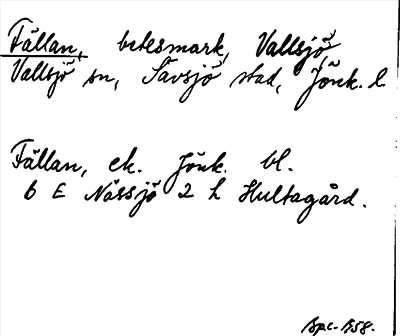 Fällan, betesmark, Vallsjö,
Vallsjö sn, Sävsjö stad, Jönk. l.
Fällan, ek. Jönk. bl.
6 E Nässjö 2 h Hultagård.